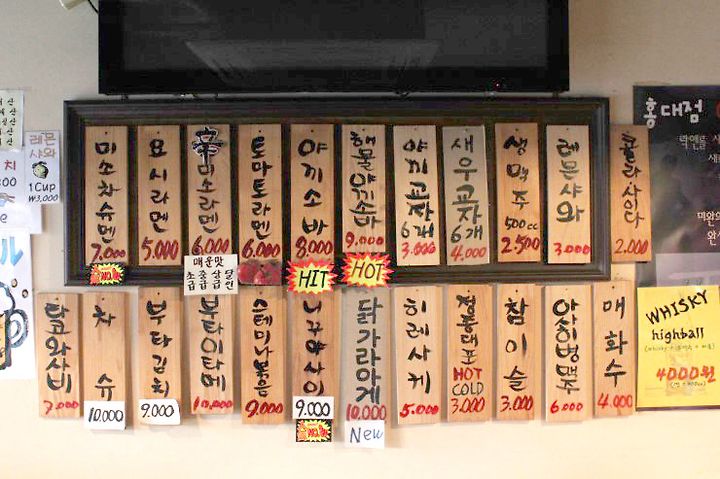 미소차슈멘
7.000
요시라멘
5.000
辛미소라멘
6.000
매운맛
초 중 상 달
급 급 급 인
토마토라멘
6.000
야끼소바
8.000
HIT
해물야끼소바
9.000
HOT
야끼교자
6개
3.000
새우교자
6개
4.000
생맥주
500cc
2500
레몬샤와
3.000
콜라사이다
2.000
타코와사비
7.000
차슈
10.000
부타김치
9.000
부타이타메
10.000
스테미나볶음
9.000
니꾸야사이
9.000
닭가라아게
10.000
New
히레사케
5.000
정종대포
HOT
COLD
3.000
참이슬
3.000
아사이병맥주
6.000
매화수
4.000
레몬
샤와
1Cup
₩3,000
홍대점
WHISKY
highball
4000원